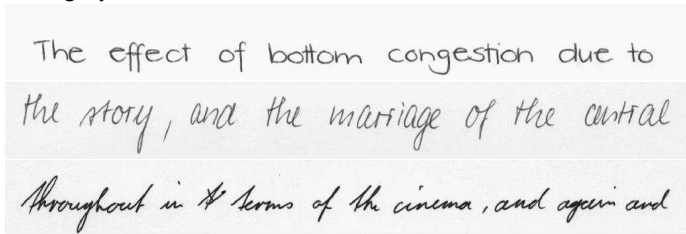 The effect of bottom congestion due to
the story, and the marriage of the central
throughout in terms of the cinema, and again and